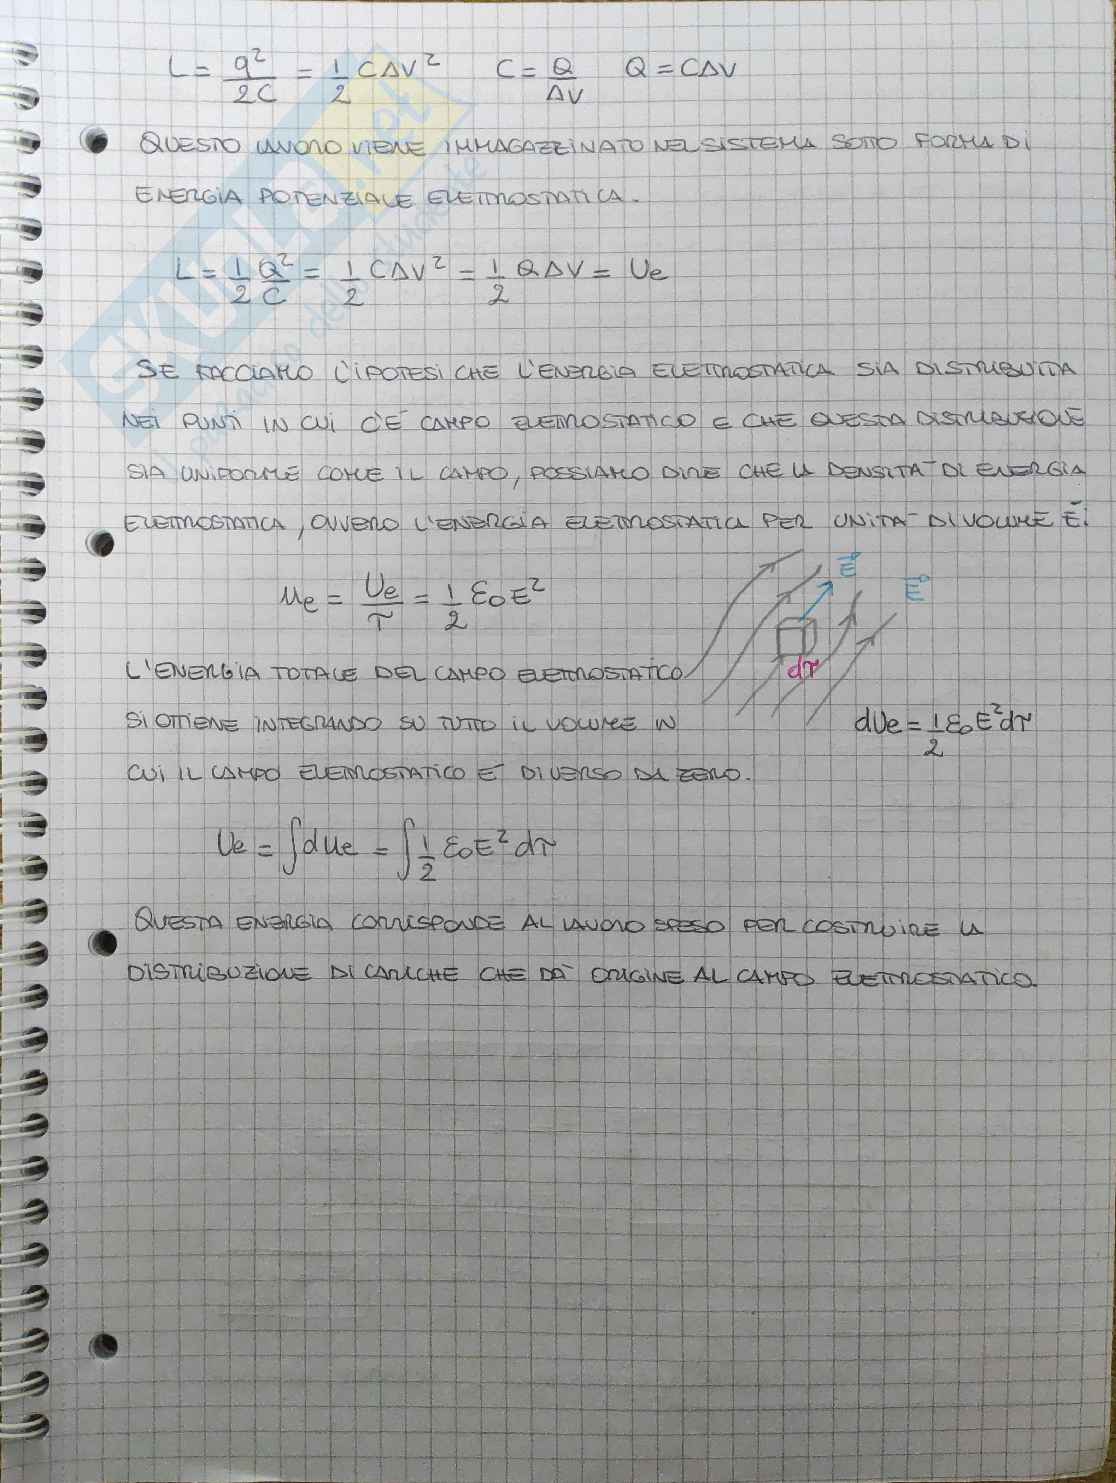 L = q²/2C = 1/2 CΔV²   C = Q/ΔV   Q = CΔV
QUESTO LAVORO VIENE IMMAGAZZINATO NEL SISTEMA SOTTO FORMA DI
ENERGIA POTENZIALE ELETTROSTATICA.
L = 1/2 Q²/C = 1/2 CΔV² = 1/2 QΔV = Ue
SE FACCIAMO L'IPOTESI CHE L'ENERGIA ELETTROSTATICA SIA DISTRIBUITA
NEI PUNTI IN CUI C'È CAMPO ELETTROSTATICO E CHE QUESTA DISTRIBUZIONE
SIA UNIFORME COME IL CAMPO, POSSIAMO DIRE CHE LA DENSITÀ DI ENERGIA
ELETTROSTATICA, OVVERO L'ENERGIA ELETTROSTATICA PER UNITÀ DI VOLUME È:
ue = Ue/τ = 1/2 ε0E²
E⃗
E⃗
dτ
L'ENERGIA TOTALE DEL CAMPO ELETTROSTATICO
SI OTTIENE INTEGRANDO SU TUTTO IL VOLUME IN
dUe = 1/2 ε0E²dτ
CUI IL CAMPO ELETTROSTATICO È DIVERSO DA ZERO.
Ue = ∫dUe = ∫1/2 ε0E²dτ
QUESTA ENERGIA CORRISPONDE AL LAVORO SPESO PER COSTRUIRE LA
DISTRIBUZIONE DI CARICHE CHE DÀ ORIGINE AL CAMPO ELETTROSTATICO.
SKUOLA.net